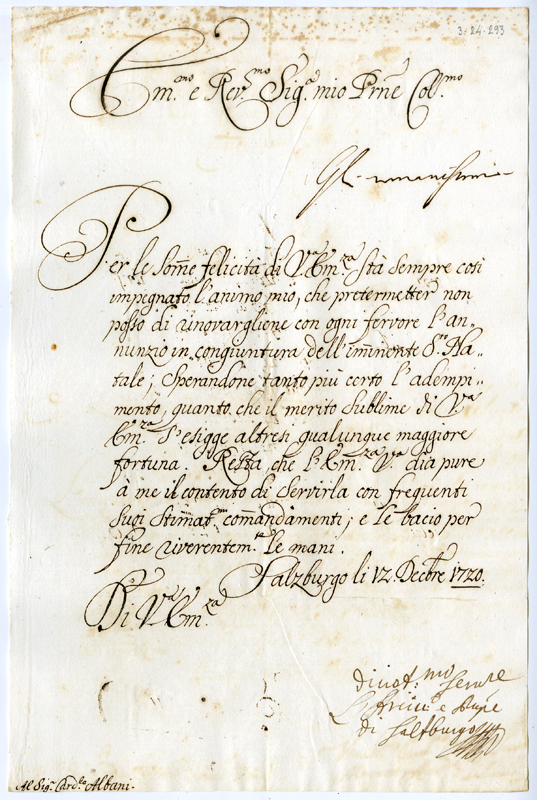 3-24-293
Em.mo e Rev.mo Sig.r mio Prne Col.mo
Per le som̄e felicità di V. Em.za stà sempre così
impegnato l'animo mio, che pretermetter non
posso di rinovargliene con ogni fervore l'an-
nunzio in congiuntura dell'im̄inente S.mo Na-
tale; Sperandone tanto più certo l'adempi-
mento, quanto che il merito sublime di V.ra
Em.za s'esigge altresi qualunque maggiore
fortuna. Resta che l'Em.za V.ra dia pure
à me il contento di servirla con frequenti
suoi stimat.mi com̄andamenti; e le bacio per
fine riverentem.te le mani.
Salzburgo li 12. Decbre 1720.
Di V.ra Em.za
di Saltburgo
Al Sig.r Card.le Albani.